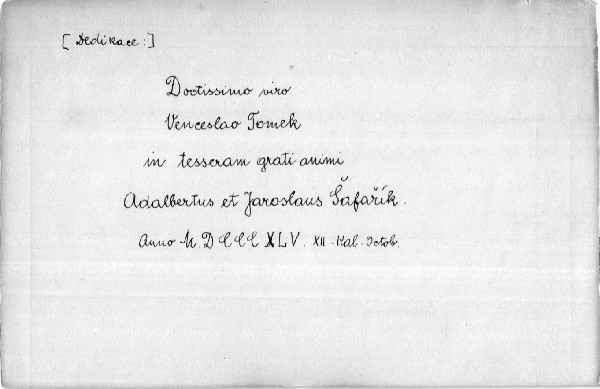 [Dedikace:]
Doctissimo viro
Venceslao Tomek
in tesseram grati animi
Adalbertus et Jaroslaus Šafařík.
Anno M.DCCCXLV. XII. Kal. Octob.